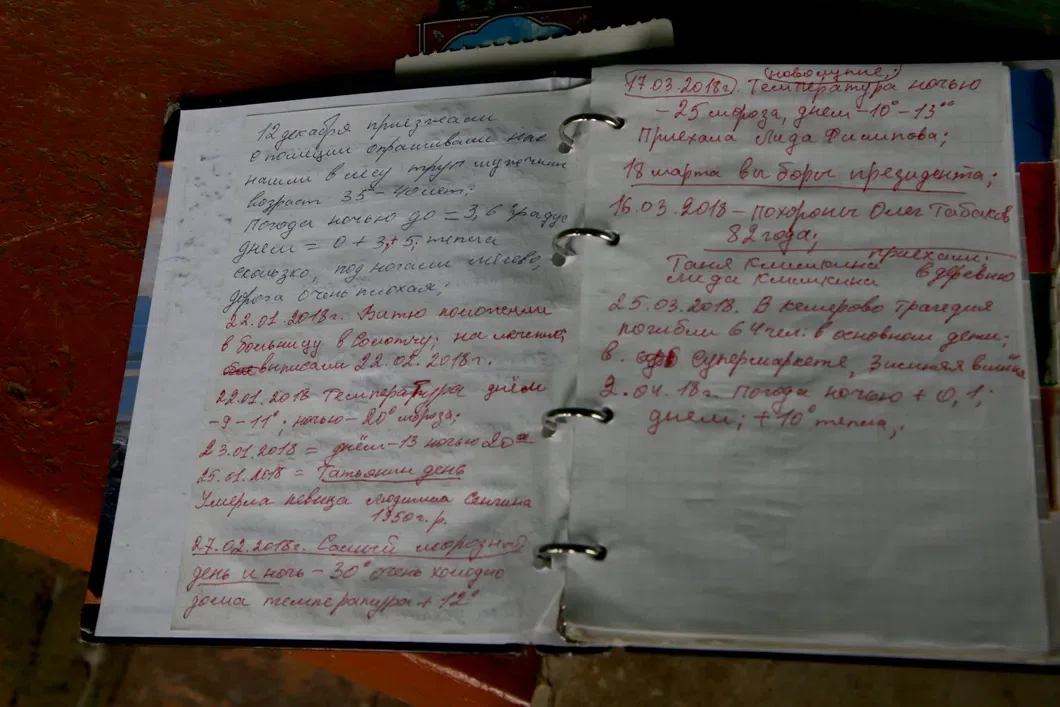 12 декабря приезжали
с полиции опрашивали нас
нашли в лесу труп мужчины
возраст 35-40 лет;
погода ночью до = 3, 6 градус
днем = 0 + 3,+ 5; тепла
скользко, под ногами
дорога очень плохая;
22.01 2018г. Витю положили
в больницу в Солотчу; на лечение,
выписали 22.02.2018г.
22.01.2018 Температура днём
-9-11°; ночью-20° мороза;
23.01.2018 = днём-13 ночью 20°
25.01.2018 = Татьянин день
Умерла певица Людмила Сенчина
1950г.р.
27.02.2018г. Самый морозный
день и ночь - 30° очень холодно
дома температура + 12°
новолуние;
17.03.2018г. Температура ночью
- 25 мороза, днем -10°-13°
Приехала Лида Филипова;
18 марта выборы президента;
16.03.2018 - похороны Олег Табаков
82 года;
приехали.
Таня Климкина в деревню
Лида Климкина
25.03.2018. В Кемерово трагедия
погибли 64 чел. в основном дети;
в. супермаркете, Зимняя вишня
2.04.18г. Погода ночью + 0, 1;
днем; + 10° тепла;